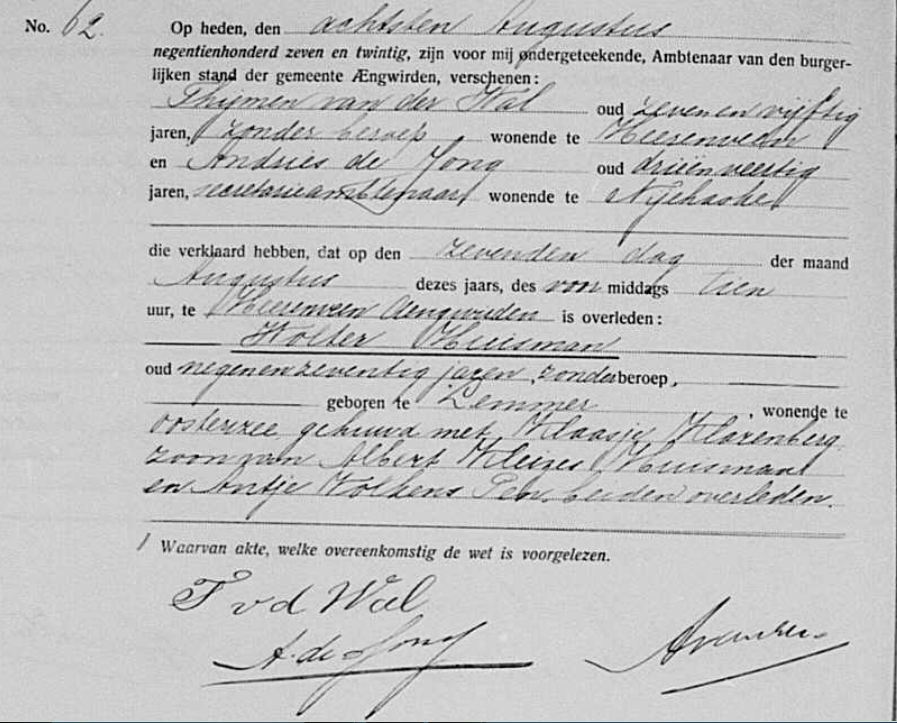 No. 62. Op heden, den achtsten Augustus
negentienhonderd zeven en twintig, zijn voor mij ondergeteekende, Ambtenaar van den burger-
lijken stand der gemeente Ængwirden, verschenen:
Thijmen van der Wal oud zevenen vijftig
jaren, zonder beroep wonende te Heerenveen
en Andries de Jong oud drieën veertig
jaren, secretarieambtenaar, wonende te Nijehaske
die verklaard hebben, dat op den zevenden dag der maand
Augustus dezes jaars, des voormiddags tien
uur, te Heerenveen Aengwirden is overleden:
Wolter Huisman
oud negenenzeventig jaren, zonder beroep,
geboren te Lemmer, wonende te
Oosterzee gehuwd met Klaasje Klazenberg
zoon van Albert Huisman
en Antje Wolters Pen, beiden overleden.
Waarvan akte, welke overeenkomstig de wet is voorgelezen.
T v d Wal
A. de Jong